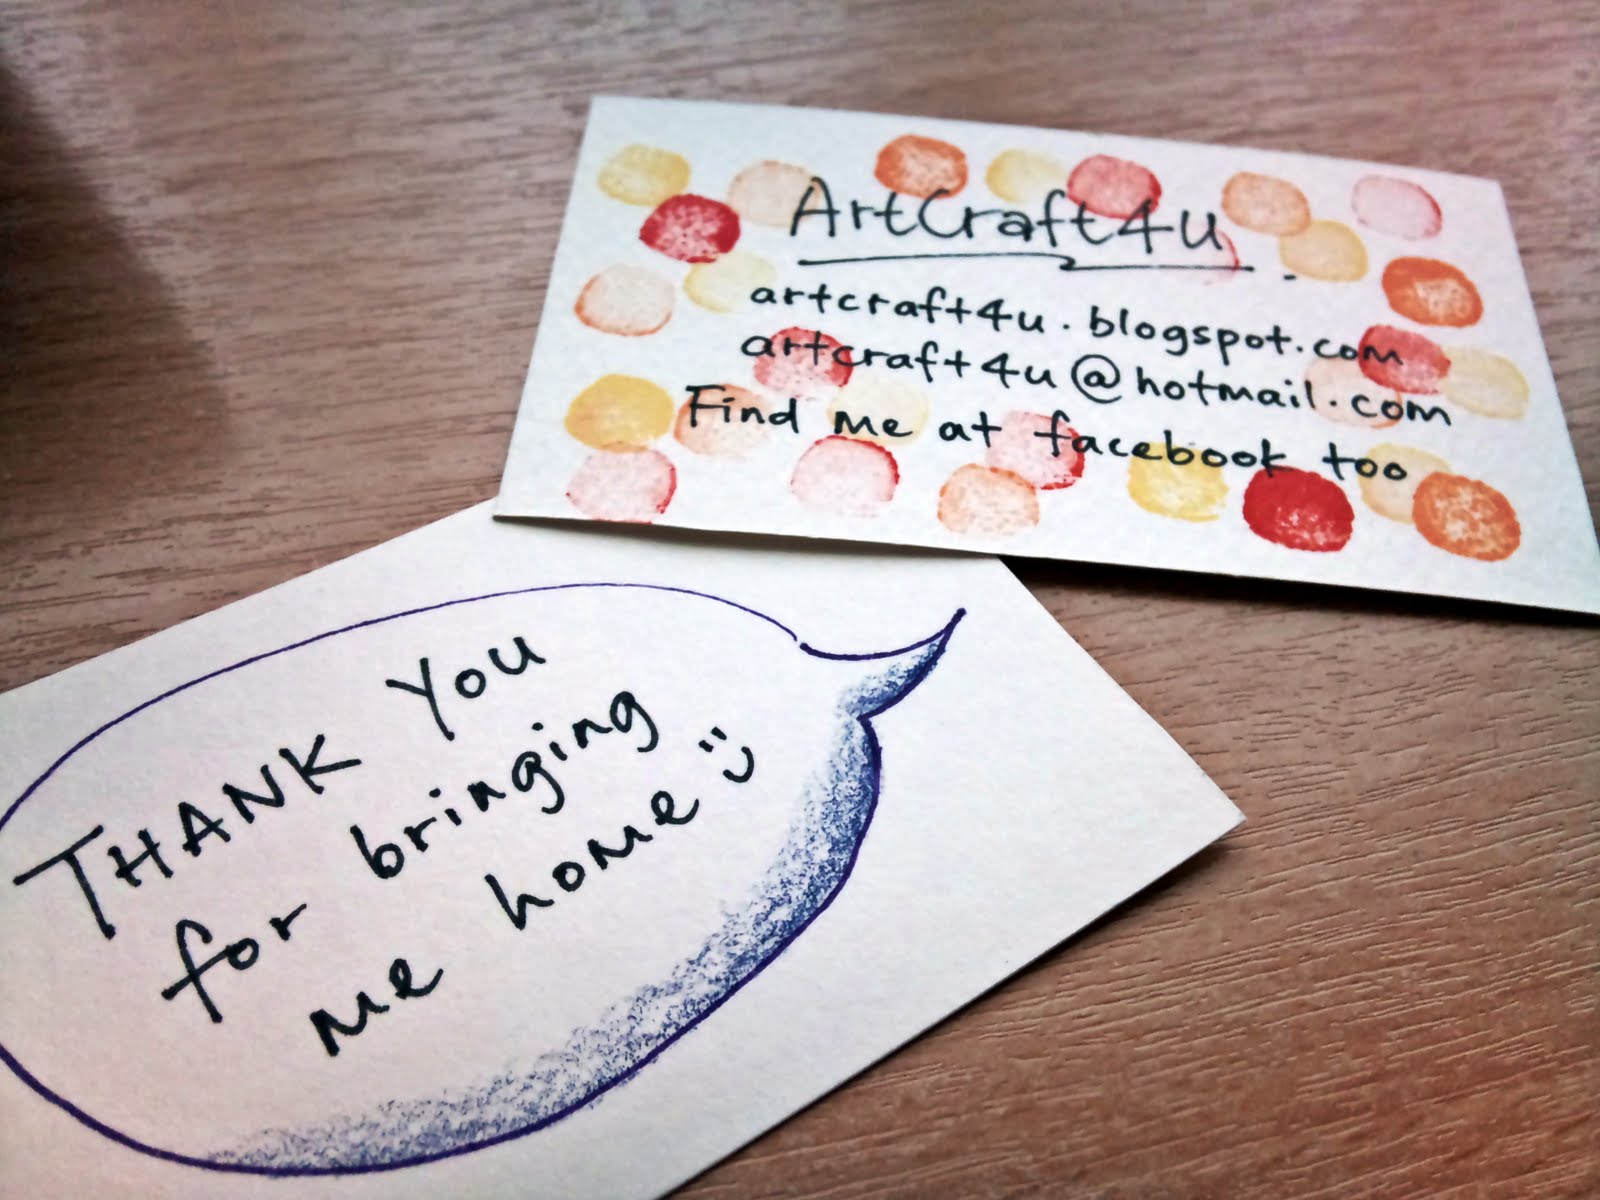 ArtCraft4u.
artcraft4u.blogspot.com
artcraft4u@hotmail.com
Find me at facebook too
THANK YOU
for bringing
me home